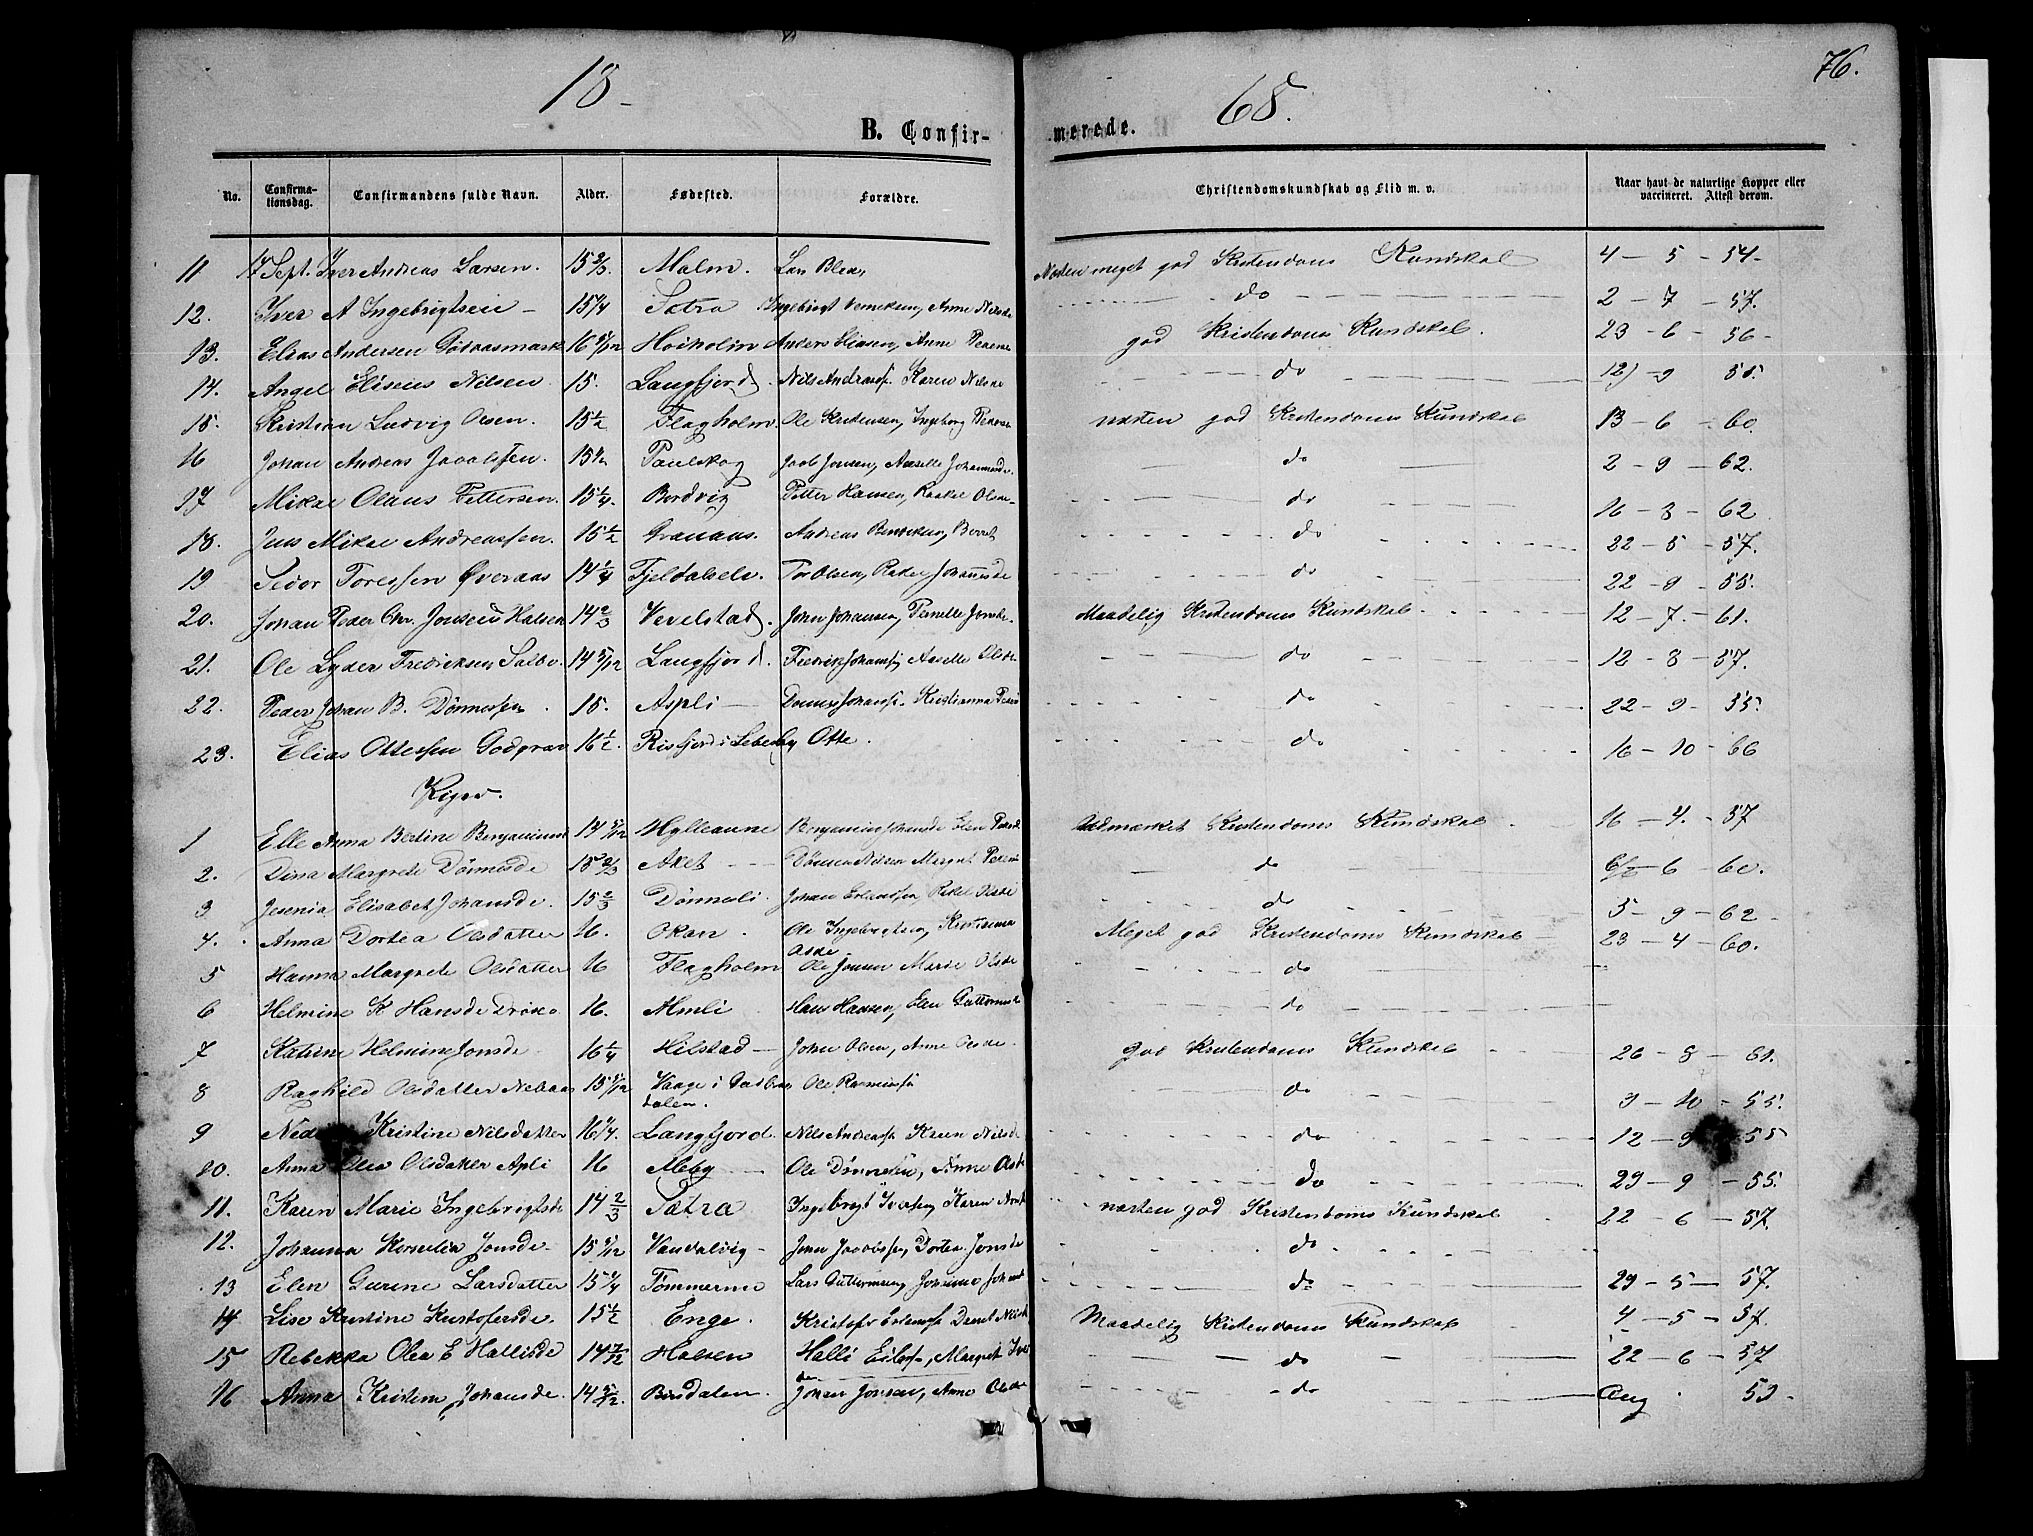 76.
18 - 68.
B. Confir- merede.
No. Confirmationsdag. Confirmandens fulde Navn. Alder. Fødested. Forældre. Christendomskundskab og Flid m. v. Naar havt de naturlige Kopper eller vaccineret. Attest derom.
11 Sept. Iver Andreas Larsen. 15 2/3 Malm. Lars Næsten meget god Kristendoms Kundskab 4 - 5 - 54.
12. Iver A Ingebrigtsen - 15 1/4 Sætra Ingebrigt Anne Nilsde do 2 - 7 - 57.
13. Elias Andersen 16 Hoiholm Anders Eliasen, Anne Pederse god Kristendoms Kundskab. 23 - 6 - 56 -
14. Angel Eliseus Nilsen 15. Langfjord. Nils Andreass. Karen Nilsde do 12 - 9 55.
15. Kristian Ludvig Olsen. 15 1/2 Flagholm. Ole Kristensen, Ingeborg næsten god Kristendoms Kundskab 13 - 6 - 60.
16 Johan Andreas Jacobssen. 15 1/2 Paulskog Jacob Jonsen, Johannesde. do 2 - 9 - 62.
17 Mikal Olaus Pettersen. 15 1/4. Bordvig Petter Hansen, Raakel Olsde - do 16 - 8 - 62
18. Jens Mikal Andreassen. 15 1/2 Granaas. Andreas Bendiksen, Berret do 22 - 5 - 57.
19 Sedor Toressen Øveraas 14 1/4 Fjeldalselv. Tor Olsen, Johannesde do 22 - 9 - 55.
20. Johan Peder Chr. Jonsen Halsen 14 2/3 Vevelstad. John Johansen, Pernelle Jonsde. Maadelig Kristendoms Kundskab 12 - 7 - 61.
21. Ole Lyder Fredriksen 14 5/12 Langfjord. Fredrik Johanss, Olsde do 12 - 8 - 57.
22. Peder Johan B. Dønnessen. 15. Aspli - Johanss. Kristianna do 22 - 9 - 55.
23. Elias Ottessen 16 1/2. Risfjord i Lebesby Otte. do 16 - 10 - 66
Piger.
1 Elle Anna Bertine Benjaminsd 14 Hylleaune Benjamin Elen Udmærket Kristendoms Kundskab 16 - 4. - 57
2. Dina Margrete Dønnesde 15 2/3 Aket - - Dønnes Nilsen Margret do 6 - 60.
3 Jesenia Elisabet Johansde. 15 2/3 Dønnesli. Johan Erlandssen Olsde do 5 - 9 - 62 -
4. Anna Dortea Olsdatter 16. Okan. Ole Ingebrigtsen, Kristianna Olsde Meget god Kristendoms Kundskab 23 - 4 - 60.
5 Hanna Margrete Olsdatter 16 Flagholm Ole Jonsen Marie Olsde do
6 Helmine K Hansde 16. Almli Hans Hansen, Elen Guttormsde do
7 Katrine Helmine Jonsde 16 1/4 Hilstad - John Olsen, Anne Olsde. god Kristendoms Kundskab 26 - 8 - 61.
8 Raghild Olsdatter 15 Vaage i Gudbrandsdalen. Ole do 9 - 10 - 55.
9 Kristine Nilsdatter 16 1/4. Langfjord. Nils Andreass Karen Nilsde do 12 - 9 - 55
10. Anna Olea Olsdatter Apli 16 Aleby - Ole Dønnessen, Anne Olsde do 29 - 9 - 55.
11. Karen Marie Ingebrigtsde 14 2/3 Sætra Ingebrigt Iversen Karen næsten god Kristendoms Kundskab 22 - 6 - 57
12. Johanna Kornelia Jonsde. 15 Vandalvig - John Jacobssen, Dortea Jonsde do
13 Elen Gurine Larsdatter 15 1/4 Tømmermo Lars Guttormsen, do 29 - 5 - 57.
14 Lise Kristine Kristofersde. 15 1/2 Enge. Kristofer Erlands. Maadelig Kristendoms Kundskab 4 - 5 - 57.
15 Rebekka Olea E Hallisde 14 7/12 Halsen Halli Eilers., Margret Iversde do 22 - 6 - 57
16 Anna Kristine Johansde. 14 Bindalen. Johan Jonsen, Anne Olsde - do Aug. 59 -